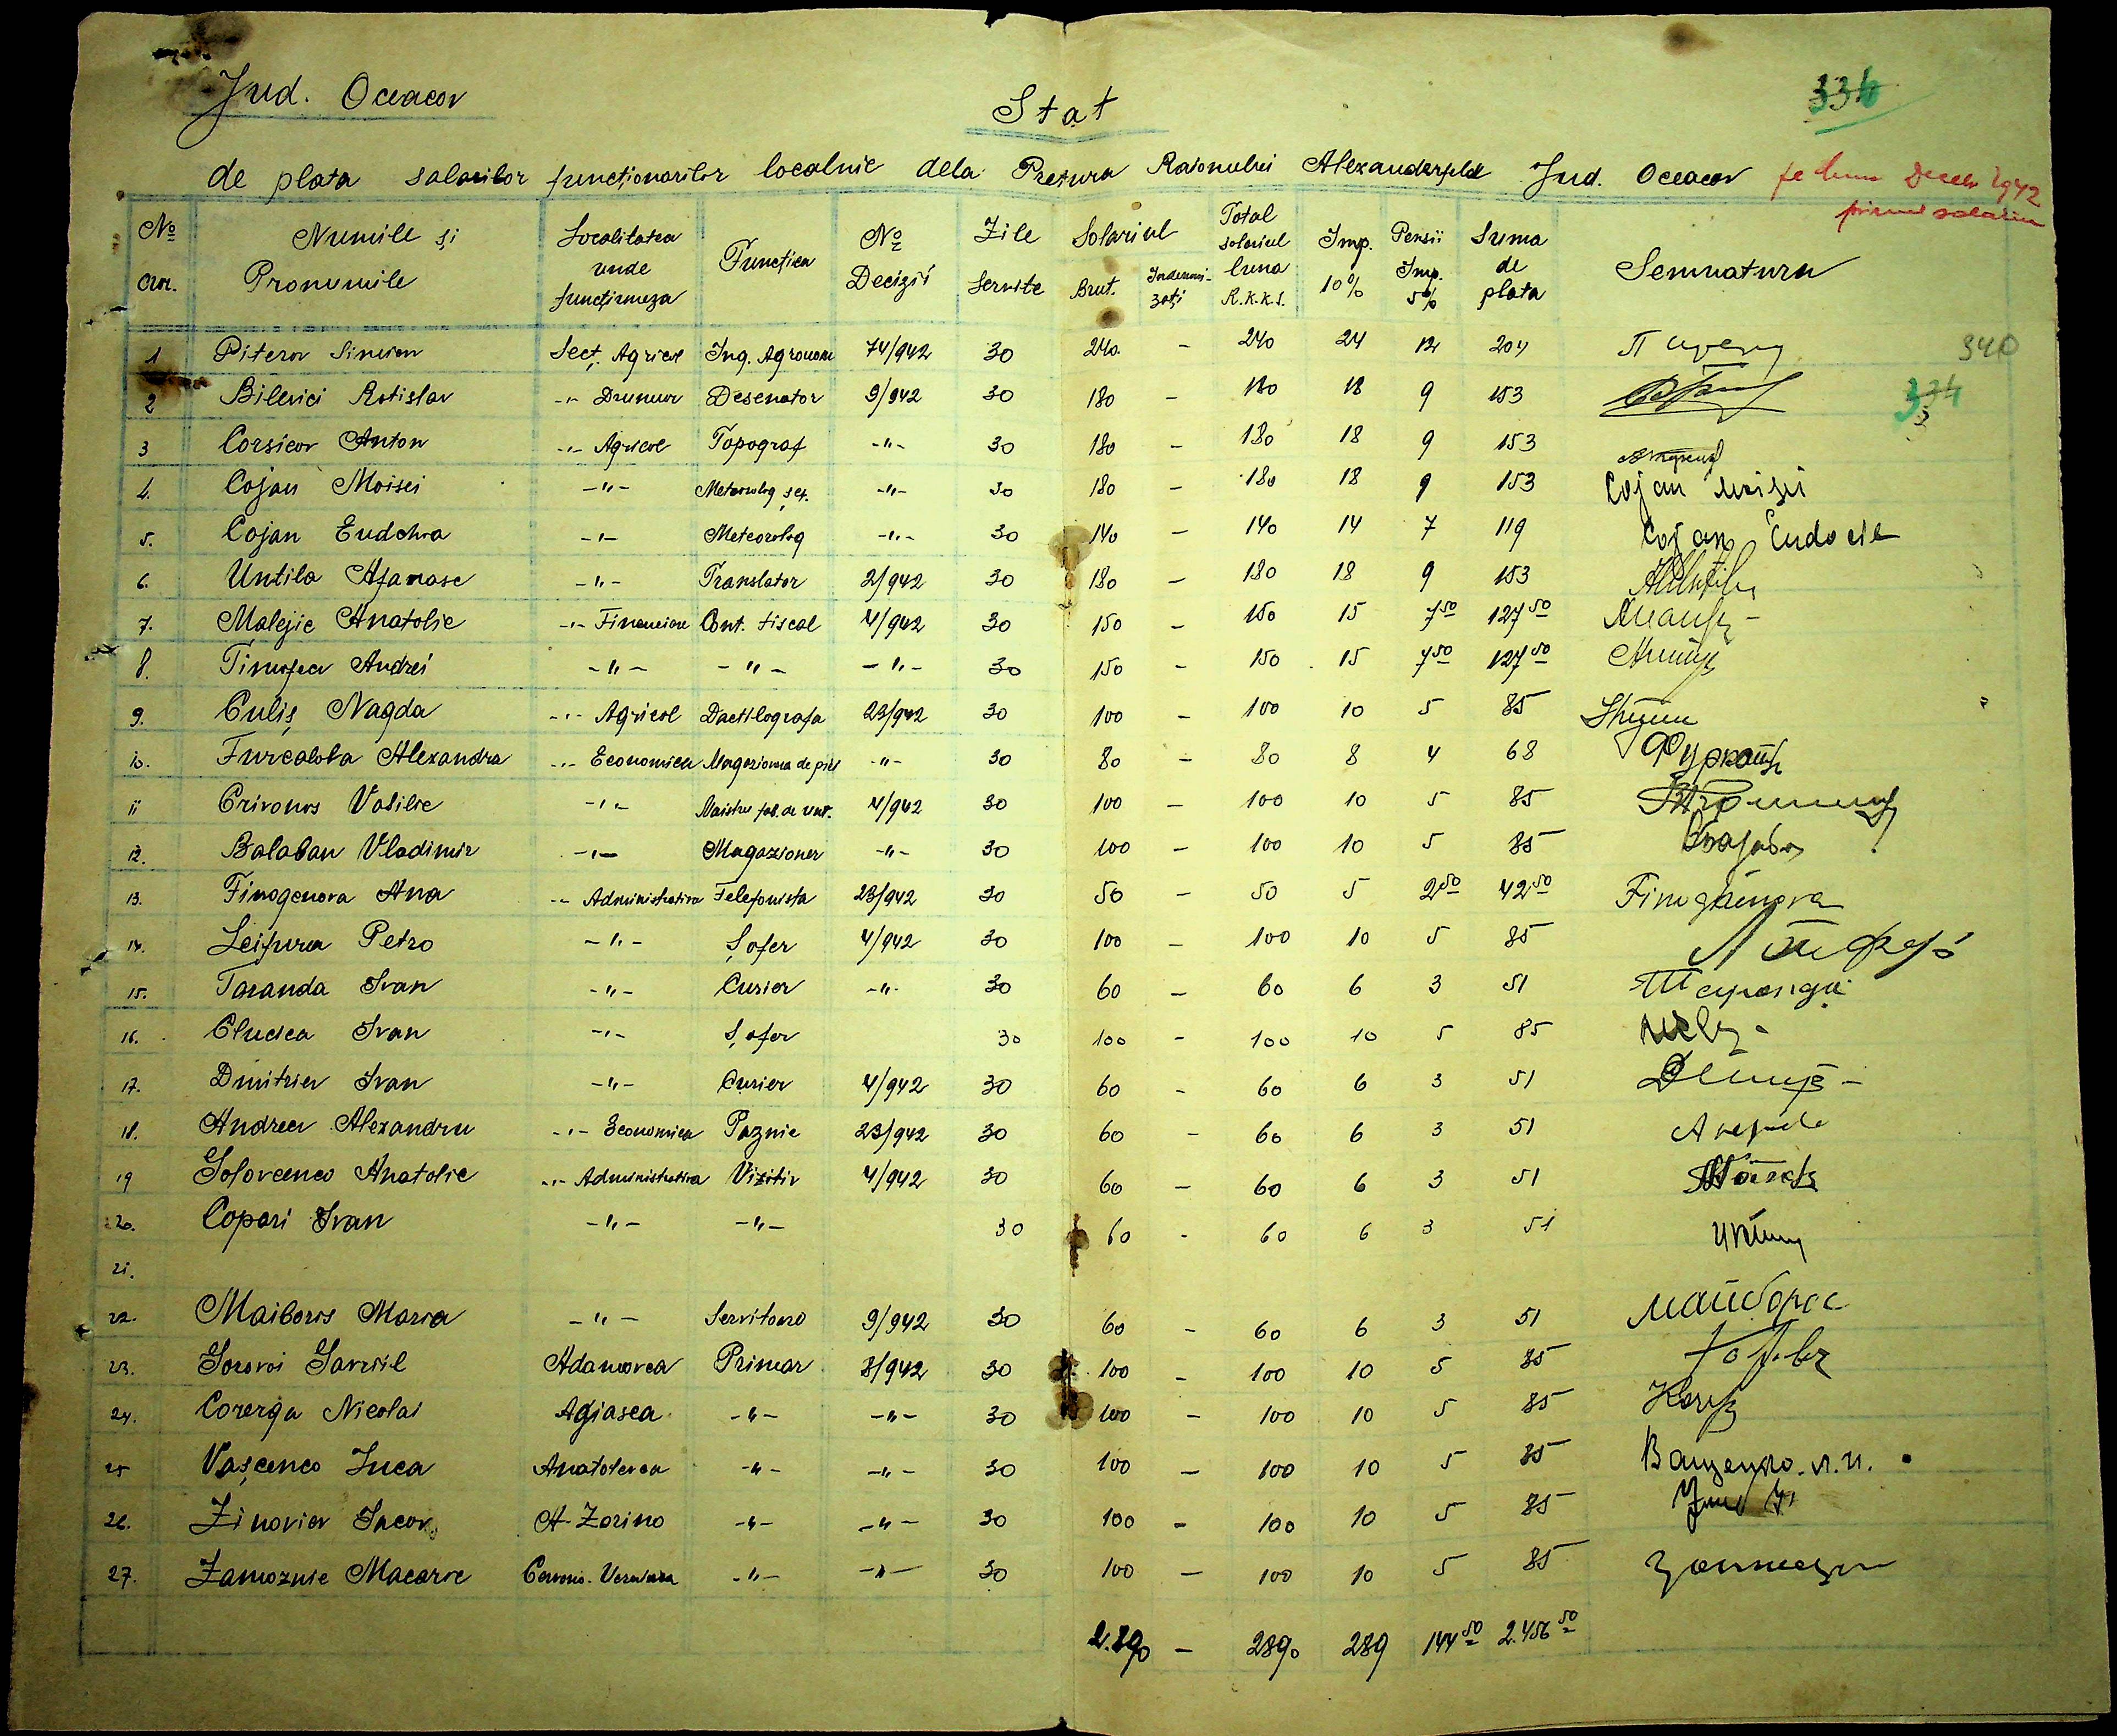 Jud. Oceacov
Stat
336
de plata salariilor funcționarilor localnic dela Pretura Raionului Alexanderfeld Jud. Oceacov pe luna Decebr 1942
primul salariu
No crn. Numile și Pronumile Localitatea unde funcțiuneza Funcția No Decizii Zile Servite Solariul Brut. Indemnizați Total solariul luna R.K.K.S. Imp. 10% Pensii Imp. 5% Suma de plata Semnatura
1 Piterov Simion Secț. Agricol Ing. Agronom 74/942 30 240 - 240 24 12 204 340
2 Bilevici Rotislav -"- Drumuor Desenator 9/942 30 180 - 180 18 9 153 334
3 Corsicov Anton -"- Agricol Topograf -"- 30 180 - 180 18 9 153
4. Cojan Moisei -"- Meteorolog șef. -"- 30 180 - 180 18 9 153 Cojan Moisei
5. Cojan Eudchia -"- Meteorolog -"- 30 140 - 140 14 7 119 Cojan Eudocie
6. Untila Afanase -"- Translator 2/942 30 180 - 180 18 9 153
7. Malejic Anatolie -"- Financiar Cont. fiscal 4/942 30 150 - 150 15 7 50 127 50
8. Timofea Andrei -"- -"- -"- 30 150 - 150 15 7 50 127 50
9. Culiș Nagda -"- Agricol Dactilografa 23/942 30 100 - 100 10 5 85
10. Furcalola Alexandra -"- Economica Magaziona de piel -"- 30 80 - 80 8 4 68
11 Crivonos Vasilie -"- Maistru fab. de unt. 4/942 30 100 - 100 10 5 85
12. Balaban Vladimir -"- Magazioner -"- 30 100 - 100 10 5 85
13. Finogenova Ana -"- Administrativa Telefonista 23/942 30 50 - 50 5 2 50 42 50 Finoghenova
14. Leifura Petro -"- Șofer 4/942 30 100 - 100 10 5 85
15. Taranda Ivan -"- Curier -"- 30 60 - 60 6 3 51
16. Cludcea Ivan -"- Șofer 30 100 - 100 10 5 85
17. Dmitriev Ivan -"- Curier 4/942 30 60 - 60 6 3 51
18. Andreev Alexandru -"- Economica Paznic 23/942 30 60 - 60 6 3 51
19 Golovcenco Anatolie -"- Administrativa Vizitiv 4/942 30 60 - 60 6 3 51
20. Copari Ivan -"- -"- 30 60 - 60 6 3 51
21.
22. Maiboros Maria -"- Servitoro 9/942 30 60 - 60 6 3 51 Майборос
23. Gorovoi Gavriil Adamovca Primar 8/942 30 100 - 100 10 5 85
24. Coverga Nicolai Agiasca -"- -"- 30 100 - 100 10 5 85
25 Vașcenco Luca Anatolevca -"- -"- 30 100 - 100 10 5 85 Ващенко. Л. И.
26. Zinoviev Iacov A-Zorino -"- -"- 30 100 - 100 10 5 85
27. Zamoznic Macarie -"- -"- 30 100 - 100 10 5 85
2.890 - 2890 289 144 50 2.456 50